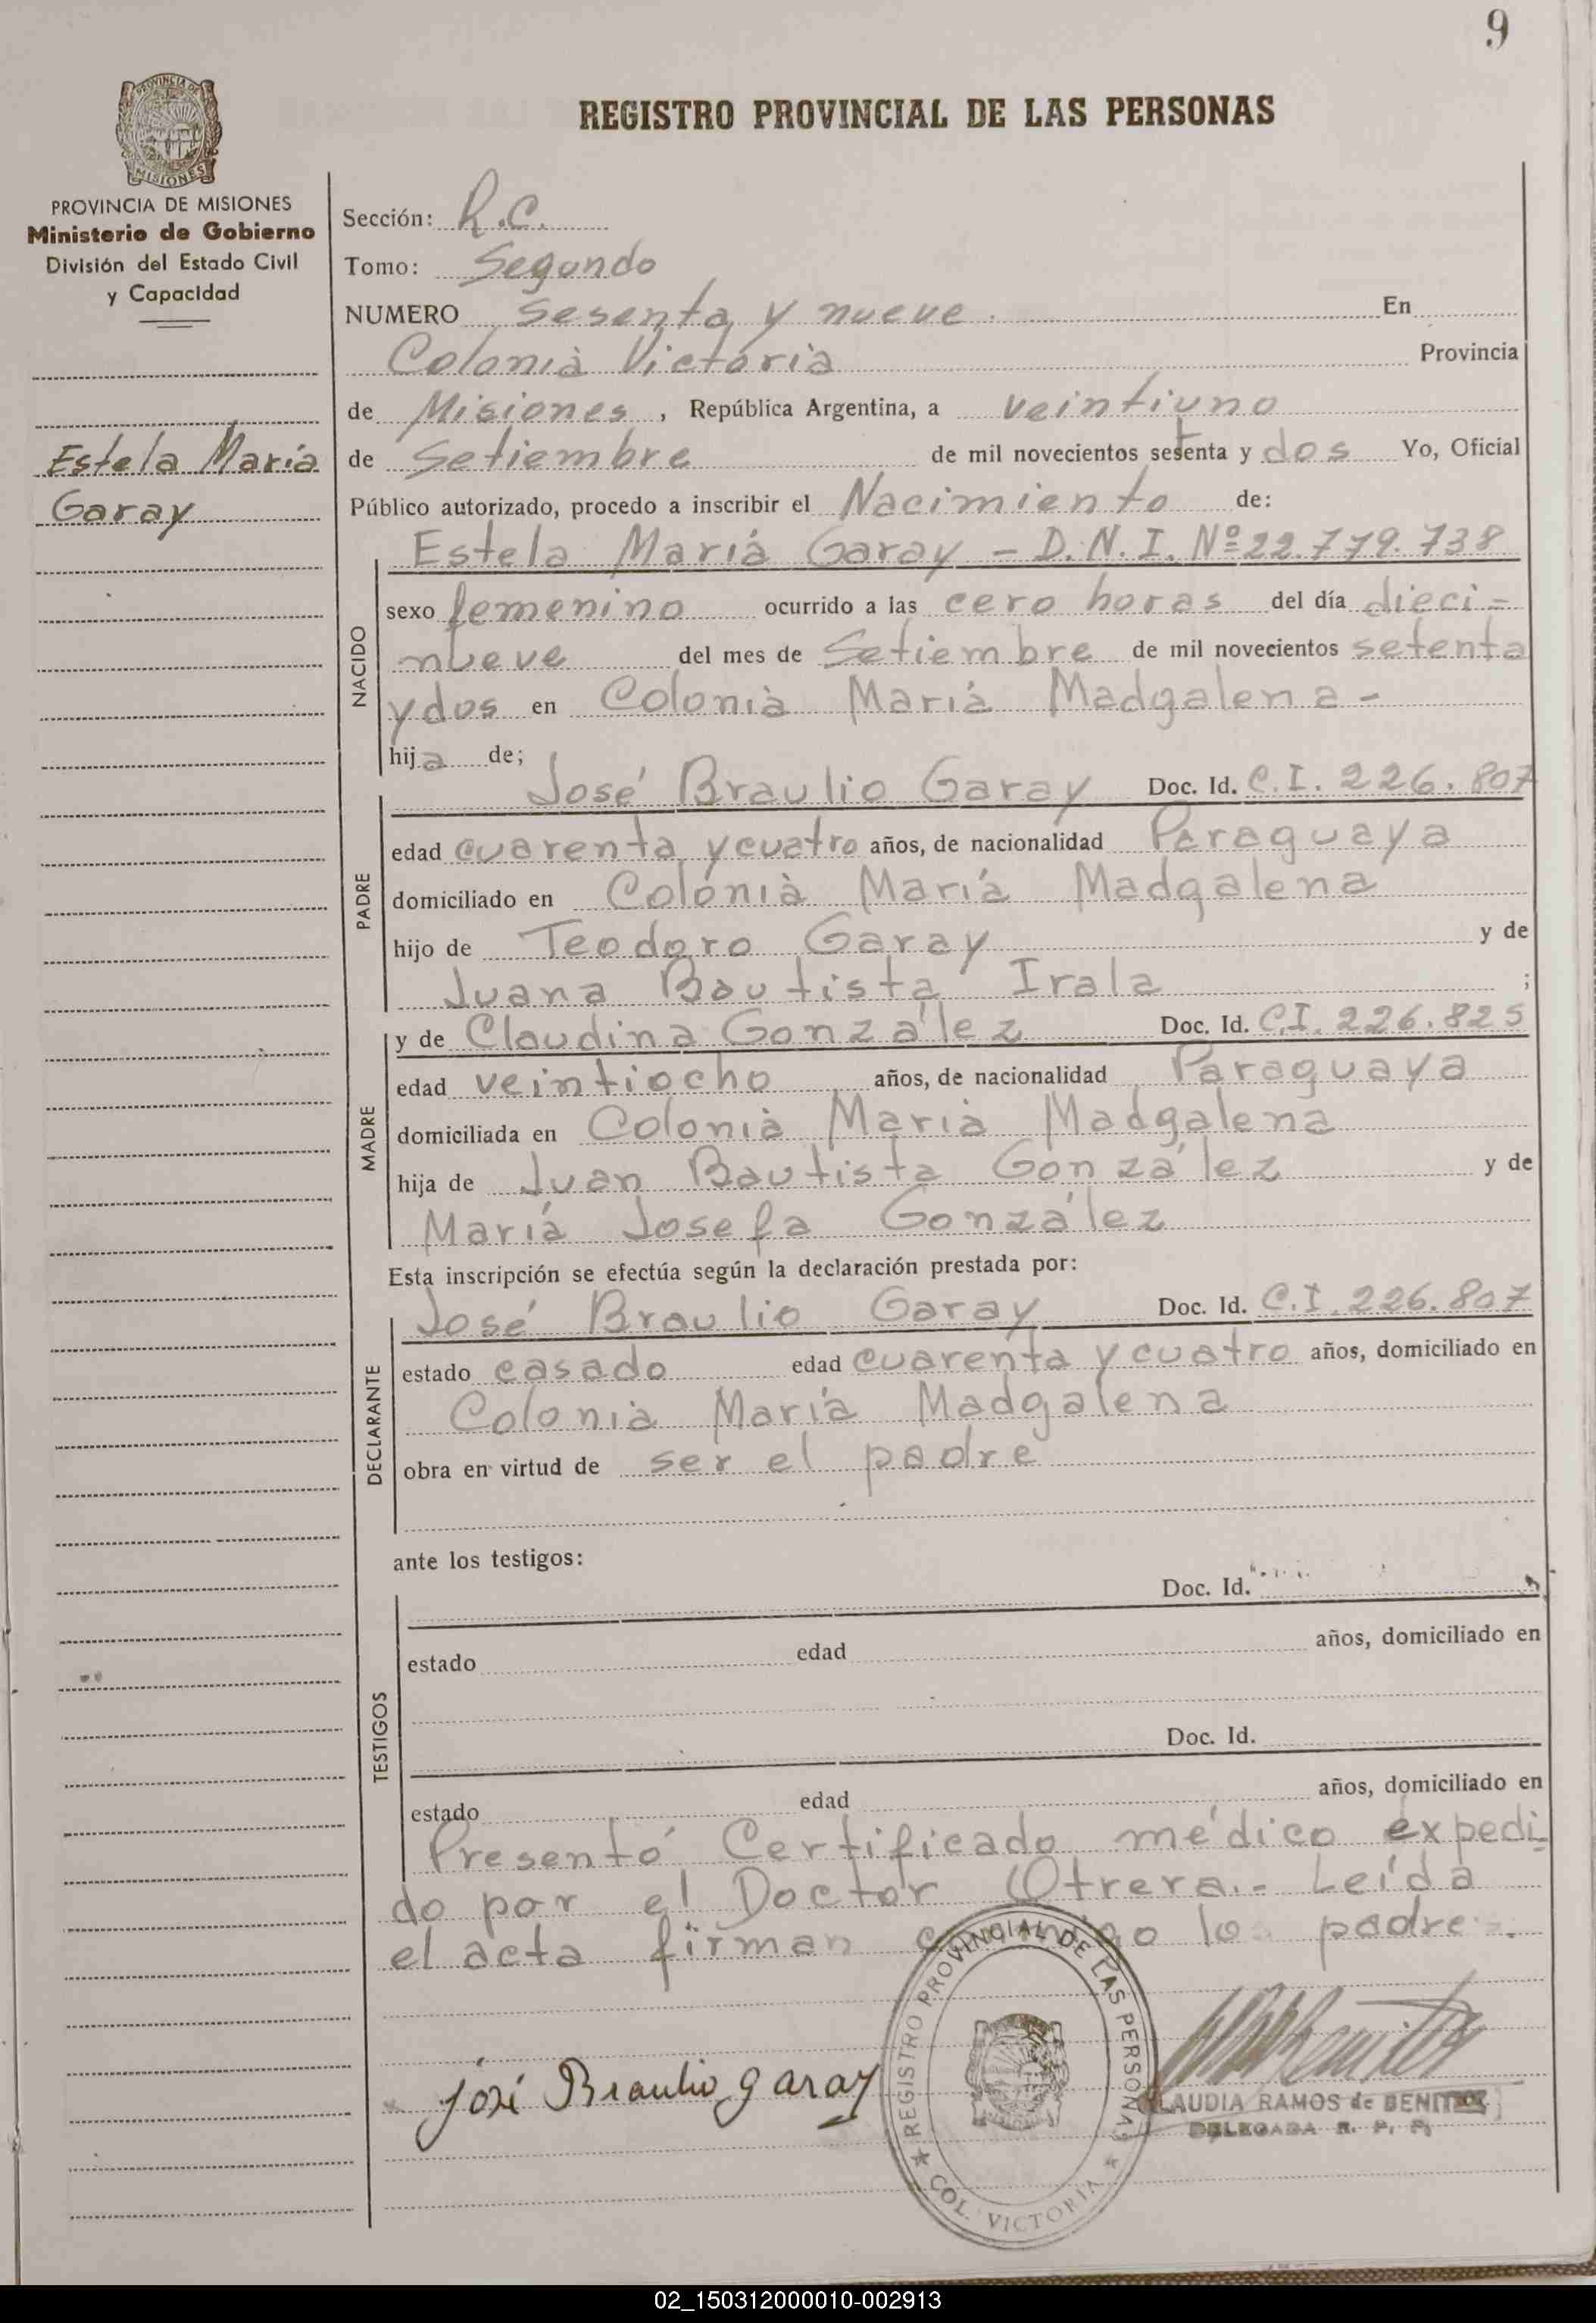 9
REGISTRO PROVINCIAL DE LAS PERSONAS
PROVINCIA DE
MISIONES
PROVINCIA DE MISIONES
Ministerio de Gobierno
División del Estado Civil
y Capacidad
Estela María
Garay
Sección: R.C.
Tomo: Segundo
NUMERO Sesenta y nueve. En
Colonià Victoria Provincia
de Misiones, República Argentina, a veintiuno
de Setiembre de mil novecientos setenta y dos Yo, Oficial
Público autorizado, procedo a inscribir el Nacimiento de:
Estela Mariá Garay - D.N.I. Nº 22.779.738
NACIDO
sexo femenino ocurrido a las cero horas del día dieci-
nueve del mes de Setiembre de mil novecientos setenta
y dos en Colonià Mariá Madgalena-
hija de;
PADRE
José Braulio Garay Doc. Id. C.I. 226.807
edad cuarenta y cuatro años, de nacionalidad Paraguaya
domiciliado en Colonià Mariá Madgalena
hijo de Teodoro Garay y de
Juana Bautista Irala ;
MADRE
y de Claudina González Doc. Id. C.I. 226.825
edad veintiocho años, de nacionalidad Paraguaya
domiciliada en Colonià Marià Madgalena
hija de Juan Bautista González y de
Mariá Josefa González
Esta inscripción se efectúa según la declaración prestada por:
DECLARANTE
José Braulio Garay Doc. Id. C.I. 226.807
estado casado edad cuarenta y cuatro años, domiciliado en
Colonià Mariá Madgalena
obra en virtud de ser el padre
ante los testigos:
TESTIGOS
Doc. Id.
estado edad años, domiciliado en
Doc. Id.
estado edad años, domiciliado en
Presentó Certificado médico expedi-
do por el Doctor Utrera.- Leída
el acta firman conmigo los padres.
José Braulio Garay
REGISTRO PROVINCIAL DE LAS PERSONAS
COL. VICTORIA
CLAUDIA RAMOS de BENITEZ
DELEGADA R. P. P.
02_150312000010-002913